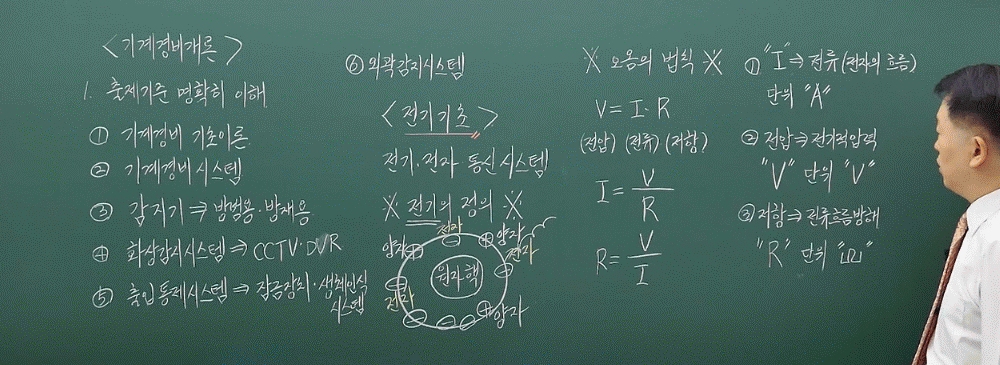 <기계경비개론>
1. 출제기준 명확히 이해
① 기계경비 기초이론
② 기계경비시스템
③ 감지기 ⇒ 방범용·방재용
④ 화상감시시스템 ⇒ CCTV·DVR
⑤ 출입통제시스템 ⇒ 잠금장치·생체인식
시스템
⑥ 외곽감지시스템
<전기기초>
전기·전자 통신시스템
※ 전기의 정의 ※
전자
양자 ⊕
⊖
⊕ 양자
전자
⊖
원자핵
⊖
전자
⊖ ⊖ ⊖
⊕ 양자
※ 오옴의 법칙 ※
V = I·R
(전압) (전류) (저항)
I = V/R
R = V/I
① "I" ⇒ 전류(전자의 흐름)
단위 "A"
② 전압 ⇒ 전기적압력
"V" 단위 "V"
③ 저항 ⇒ 전류흐름방해
"R" 단위 "Ω"